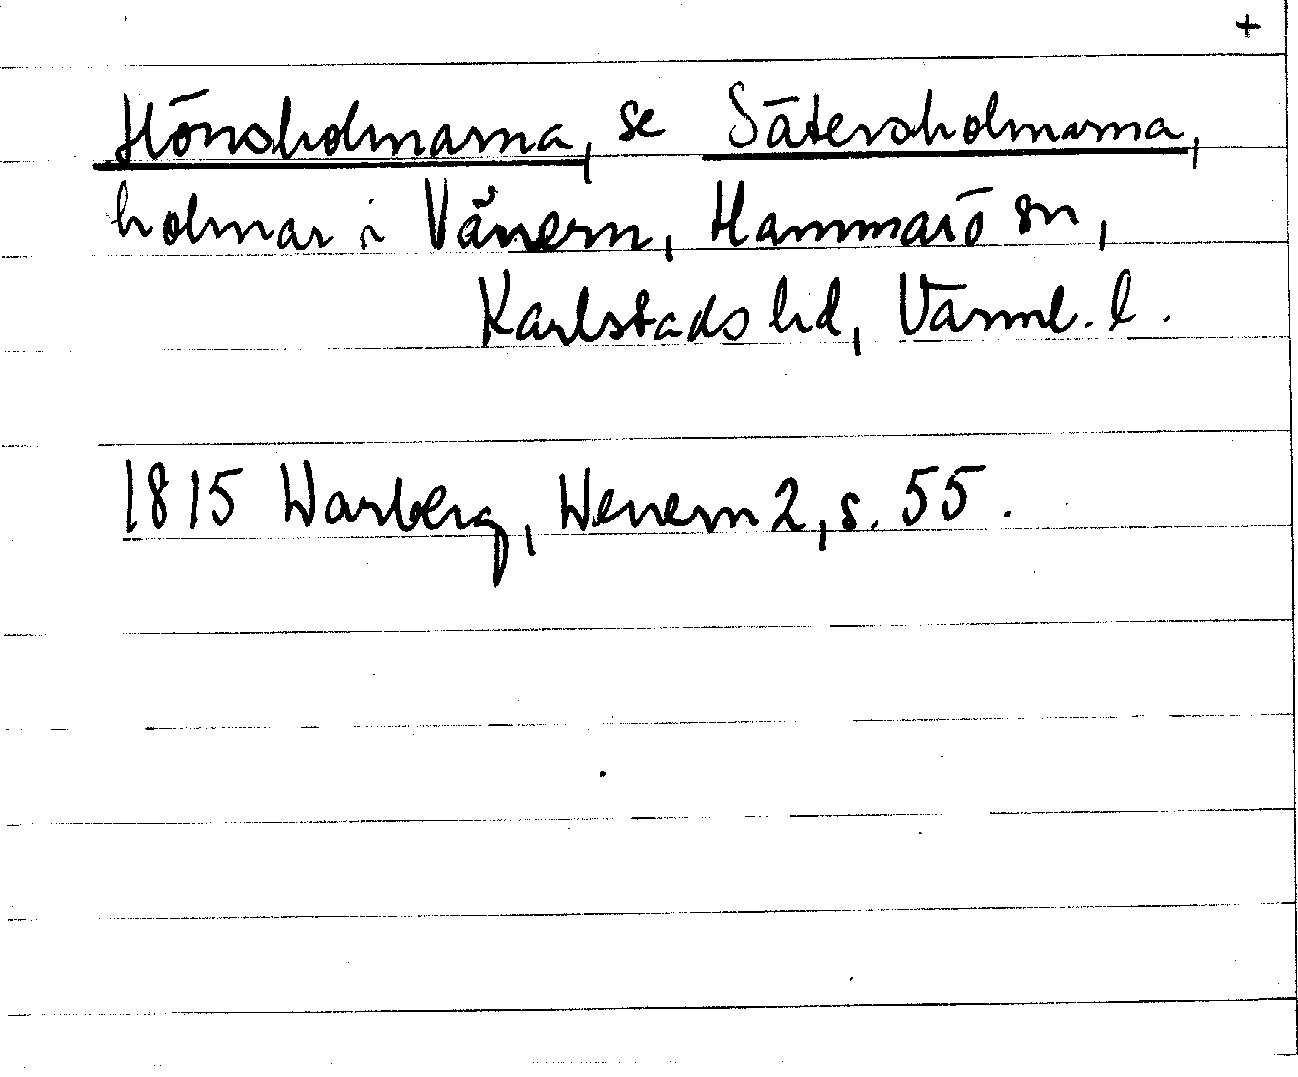 +
Hönsholmarna, se Sätersholmarna,
holmar i Vänern, Hammarö sn,
Karlstads hd, Värml. l.
1815 Warberg, Wenern 2, s. 55.